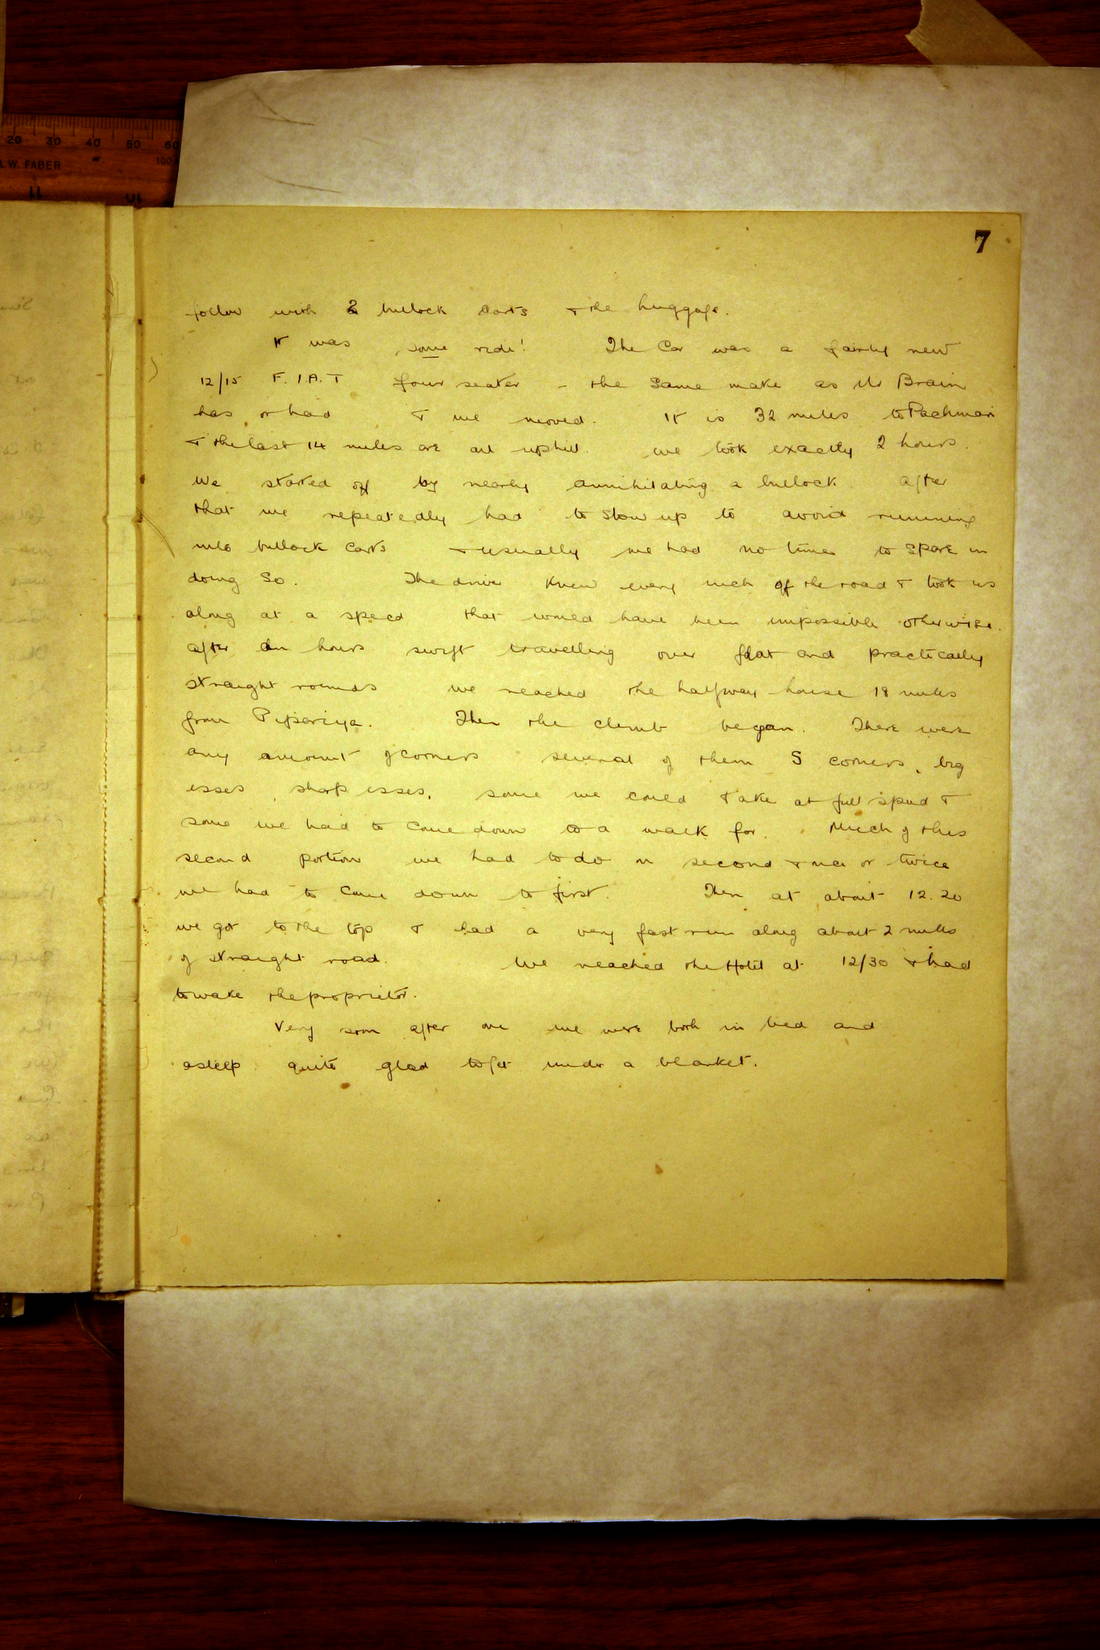 20 30 40 50 60
A.W. FABER
100
11 10
7
follow with 2 bullock carts & the luggage.
It was some ride! The Car was a fairly new
12/15 F.I.A.T four seater - the same make as Mr Brain
has or had & we moved. It is 32 miles to Pachmari
& the last 14 miles are all uphill. we took exactly 2 hours
We started off by nearly annihilating a bullock after
that we repeatedly had to slow up to avoid running
into bullock carts & usually we had no time to spare in
doing so. The driver knew every inch of the road & took us
along at a speed that would have been impossible otherwise.
after an hours swift travelling over flat and practically
straight we reached the halfway house 18 miles
from Pipariya. Then the climb began. There were
any amount of corners several of them S corners, big
esses, sharp esses, some we could take at full speed &
some we had to come down to a walk for. Much of this
second portion we had to do in second & once or twice
we had to come down to first. Then at about 12.20
we got to the top & had a very fast run along about 2 miles
of straight road. We reached the Hotel at 12/30 & had
to wake the proprietor.
Very soon after one we were both in bed and
asleep quite glad to get under a blanket.